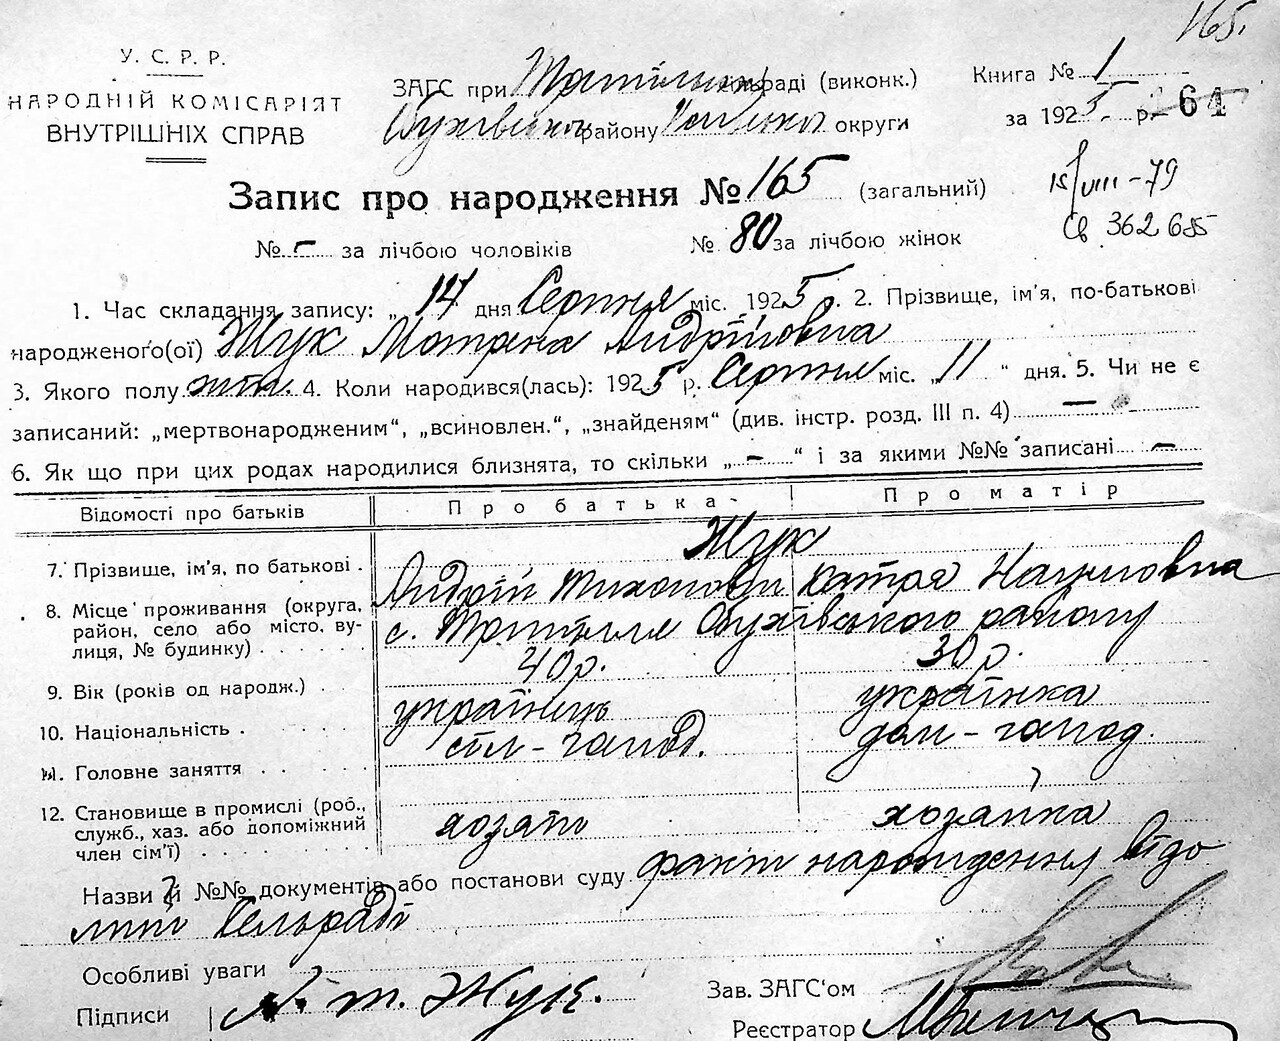 165.
У. С. Р. Р.
НАРОДНІЙ КОМІСАРІЯТ
ВНУТРІШНІХ СПРАВ
ЗАГС при сільраді (виконк.)
Обухівського району округи
Книга № 1
за 1925 р. 64
Запис про народження № 165 (загальний)
15/VIII-79
№ – за лічбою чоловіків № 80 за лічбою жінок
362685
1. Час складання запису: „14 дня Серпня міс. 1925 р. 2. Прізвище, ім'я, по-батькові
народженого(ої) Жук Мотрона Андріївна
3. Якого полу жін. 4. Коли народився(лась): 1925 р. Серпня міс. „11“ дня. 5. Чи не є
записаний: „мертвонародженим“, „всиновлен.“, „знайденям“ (див. інстр. розд. III п. 4) —
6. Як що при цих родах народилися близнята, то скільки „–“ і за якими №№ записані –
Відомості про батьків Про батька Про матір
Жук
7. Прізвище, ім'я, по батькові . Андрій Тихонови Катря Наумовна
8. Місце проживання (округа, район, село або місто, вулиця, № будинку) с. Обухівського району
9. Вік (років од народж.) 40 р. 30 р.
10. Національність українець українка
11. Головне заняття сіл-господ. дом-господ.
12. Становище в промислі (роб., служб., хаз. або допоміжний член сім'ї) хозяїн хозяйка
Назви й №№ документів або постанови суду факт народження відо
мий Сельраді
Особливі уваги
Підписи А. Т. Жук.
Зав. ЗАГС'ом
Реєстратор